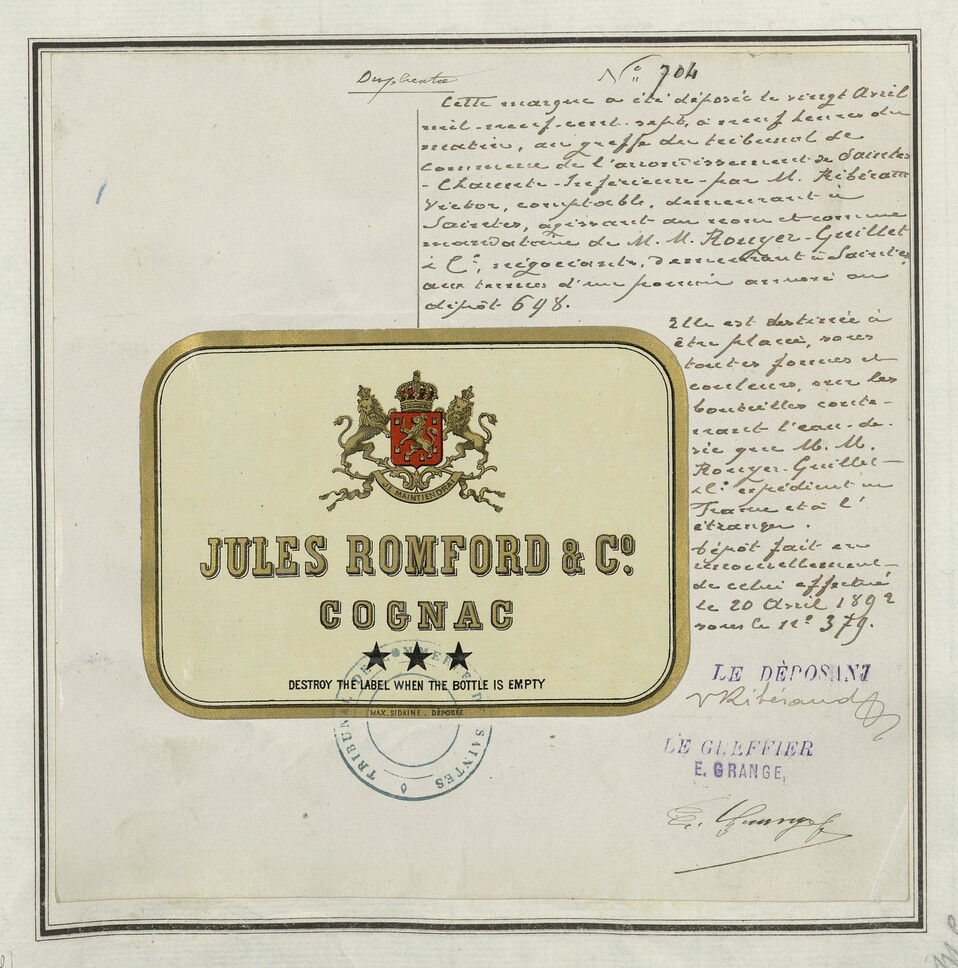 Duplicata
N° 704
Cette marque a été déposée le vingt Avril
mil-neuf-cent-sept, à neuf heures du
matin, au greffe du tribunal de
commerce de l'arrondissement de Saintes
- Charente-Inférieure - par M. Ribéraud
Victor, comptable, demeurant à
Saintes, agissant au nom et comme
mandataire de M. M. Rouyer-Guillet
& Cie, négociants, demeurant à Saintes,
aux termes d'un pouvoir annexé au
dépôt 698.
Elle est destinée à
être placée, sous
toutes formes et
couleurs, sur les
bouteilles conte-
nant l'eau-de-
vie que M. M.
Rouyer-Guillet
& Cie expédient en
France et à l'
étranger.
Dépôt fait en
renouvellement
de celui effectué
le 20 Avril 1892
sous le n° 379.
JE MAINTIENDRAI
JULES ROMFORD & Co.
COGNAC
DESTROY THE LABEL WHEN THE BOTTLE IS EMPTY
MAX. SIDAINE. DÉPOSÉE
TRIBUNAL DE COMMERCE DE SAINTES
LE DÉPOSANT
V Ribéraud
LE GREFFIER
E. GRANGE,
E. Grange